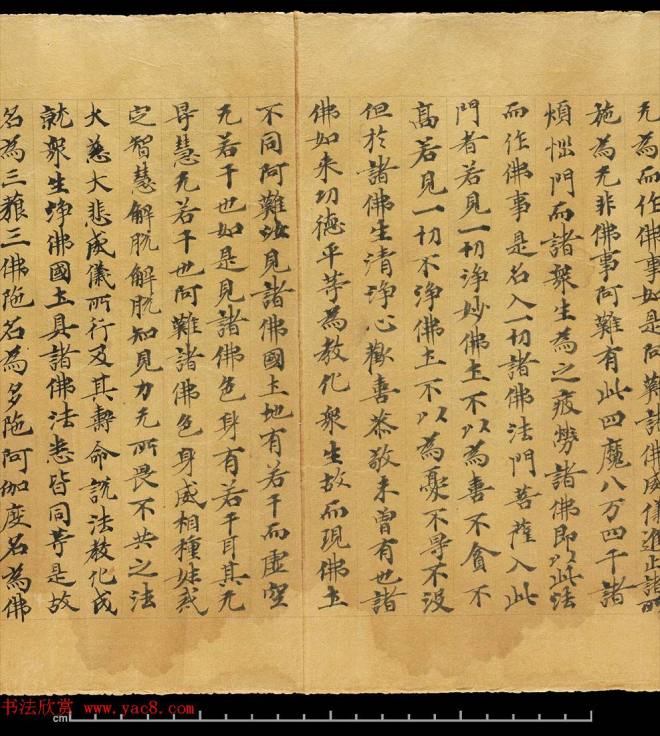 无為而作佛事如是阿難諸佛威儀進止諸所
施為无非佛事阿難有此四魔八万四千諸
煩惱門而諸衆生為之疲勞諸佛即以此法
而作佛事是名入一切諸佛法門菩薩入此
門者若見一切淨妙佛土不以為喜不貪不
髙若見一切不淨佛土不以為憂不㝵不没
但於諸佛生清淨心歡喜恭敬未曾有也諸
佛如来功德平等為教化衆生故而現佛土
不同阿難汝見諸佛國土地有若干而虚空
无若干也如是見諸佛色身有若干耳其无
㝵慧无若干也阿難諸佛色身威相種姓戒
定智慧解脱解脱知見力无所畏不共之法
大慈大悲威儀所行及其壽命說法教化成
就衆生淨佛國土具諸佛法悉皆同等是故
名為三藐三佛陁名為多陁阿伽度名為佛
书法欣赏
http://www.yac8.com
cm